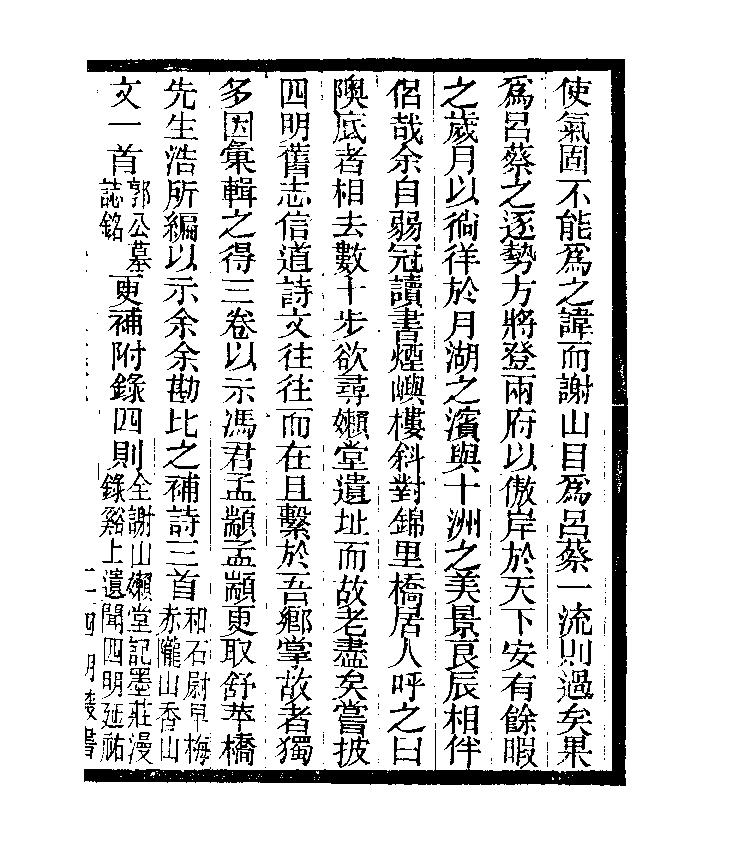 使氣固不能爲之諱而謝山目爲呂蔡一流則過矣果
爲呂蔡之逐勢方將登兩府以傲岸於天下安有餘暇
之歲月以徜徉於月湖之濱與十洲之美景良辰相伴
侶哉余自弱冠讀書煙嶼樓斜對錦里橋居人呼之曰
隩底者相去數十步欲尋嬾堂遺址而故老盡矣嘗披
四明舊志信道詩文往往而在且繫於吾鄉掌故者獨
多因彙輯之得三卷以示馮君孟顓孟顓更取舒苹橋
先生浩所編以示余余勘比之補詩三首和石尉早梅赤隴山香山
文一首郭公墓誌銘更補附錄四則全謝山嬾堂記墨莊漫錄谿上遺聞四明延祐
四明叢書